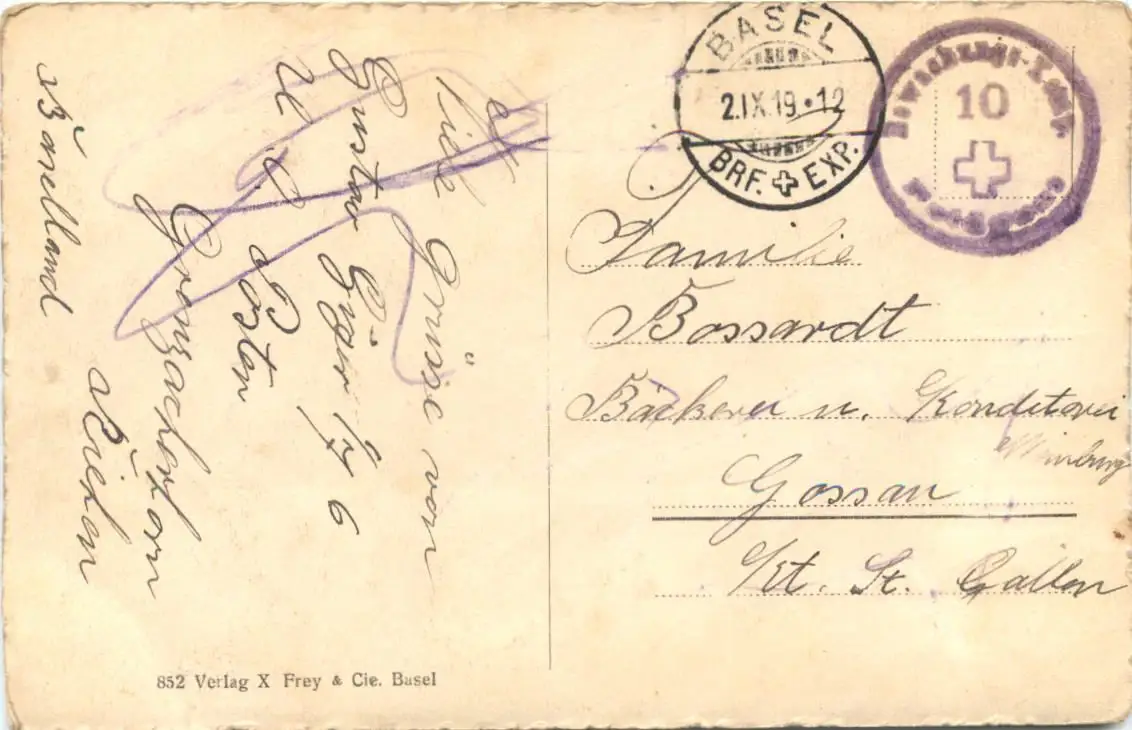 Viele Grüsse von
Gustav Gyger 17/6
U. C. Posten
Grenzacherhorn
Riehen
Baselland
852 Verlag X Frey & Cie. Basel
BASEL
2.IX.19•12
BRF. EXP.
Bewachungs-Komp.
10
Familie
Bossardt
Bäckerei u. Konditorei
Gossau
Kt. St. Gallen